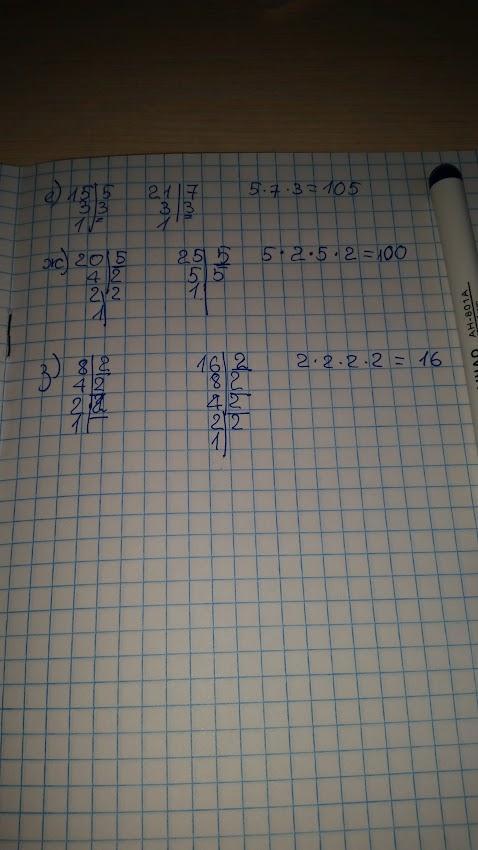 е) 15|5 21|7 5·7·3=105
3|3 3|3
1 1
ж) 20|5 25|5 5·2·5·2=100
4|2 5|5
2|2 1
1
з) 8|2 16|2 2·2·2·2=16
4|2 8|2
2|2 4|2
1 2|2
1
АН-801А